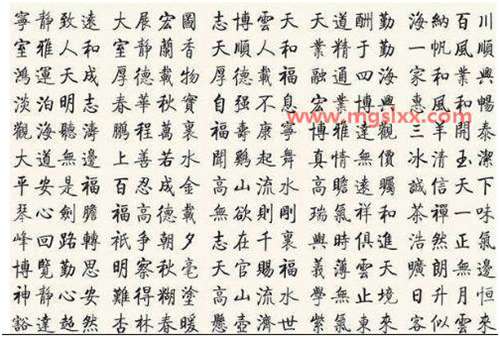 寧靜致遠 大展宏圖 志博雲天 天道酬勤 海納百川
室雅人和 室靜蘭香 大順人和 業精于勤 一帆風順
鴻運天成 厚德載物 厚德載福 融通四海 業興
淡泊明志 春華秋實 自强不息 宏業 惠風和暢
觀海聽濤 鵬程萬裏 福壽康寧 博雅達觀 三羊開泰
大道無邊 上善若水 聞鷄起舞 真情無價 冰清玉潔
平安是福 百忍成金 高山流水 高瞻遠矚 誠信天下
琴心劍膽 福高德載 無欲則剛 瑞氣祥和 茶禪一味
峰回路轉 祇争朝夕 志在千裏 與時俱進 浩然正氣
博覽勤思 明察秋毫 天官賜福 義薄雲天 曠無邊
神静心安 難得糊塗 高山流水 學無止境 日升月恒
豁達超然 杏林春暖 懸壺濟世 紫氣東來 客似雲來
www.mgslxx.com